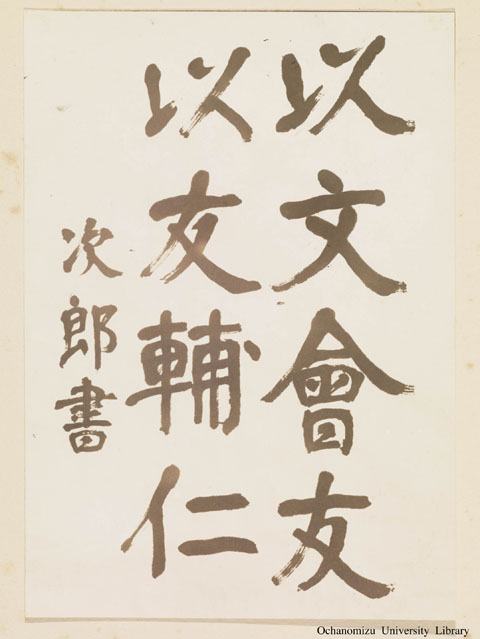 以文會友
以友輔仁
次郎書
Ochanomizu University Library